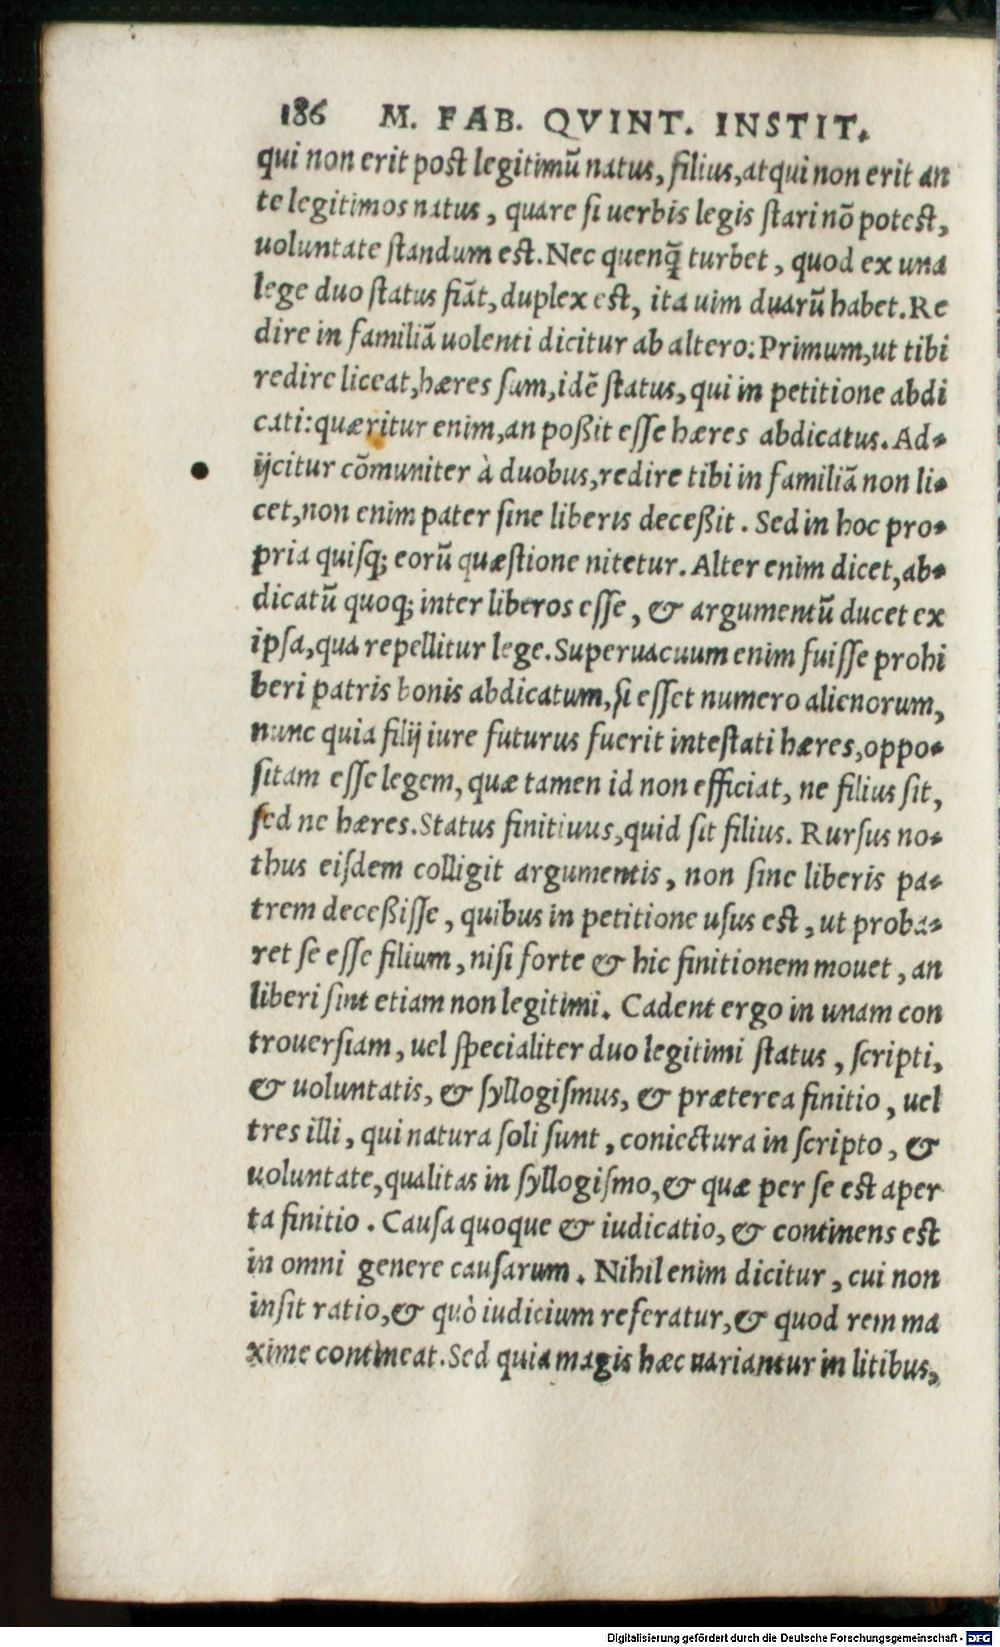 186 M. FAB. QVINT. INSTIT.
qui non erit post legitimũ natus, filius, at qui non erit an
te legitimos natus, quare si uerbis legis stari nõ potest,
uoluntate standum est. Nec quenq̃ turbet, quod ex una
lege duo status fiãt, duplex est, ita uim duarũ habet. Re
dire in familiã uolenti dicitur ab altero: Primum, ut tibi
redire liceat, hæres sum, idẽ status, qui in petitione abdi
cati: quæritur enim, an poßit esse hæres abdicatus. Ad-
ijcitur cõmuniter à duobus, redire tibi in familiã non li-
cet, non enim pater sine liberis deceßit. Sed in hoc pro-
pria quisq; eorũ quæstione nitetur. Alter enim dicet, ab-
dicatũ quoq; inter liberos esse, & argumentũ ducet ex
ipsa, qua repellitur lege. Superuacuum enim fuisse prohi
beri patris bonis abdicatum, si esset numero alienorum,
nunc quia filij iure futurus fuerit intestati hæres, oppo-
sitam esse legem, quæ tamen id non efficiat, ne filius sit,
sed ne hæres. Status finitiuus, quid sit filius. Rursus no-
thus eisdem colligit argumentis, non sine liberis pa-
trem deceßisse, quibus in petitione usus est, ut proba-
ret se esse filium, nisi forte & hic finitionem mouet, an
liberi sint etiam non legitimi. Cadent ergo in unam con
trouersiam, uel specialiter duo legitimi status, scripti,
& uoluntatis, & syllogismus, & præterea finitio, uel
tres illi, qui natura soli sunt, coniectura in scripto, &
uoluntate, qualitas in syllogismo, & quæ per se est aper
ta finitio. Causa quoque & iudicatio, & continens est
in omni genere causarum. Nihil enim dicitur, cui non
insit ratio, & quò iudicium referatur, & quod rem ma
xime contineat. Sed quia magis hæc uariantur in litibus,
Digitalisierung gefördert durch die Deutsche Forschungsgemeinschaft - DFG